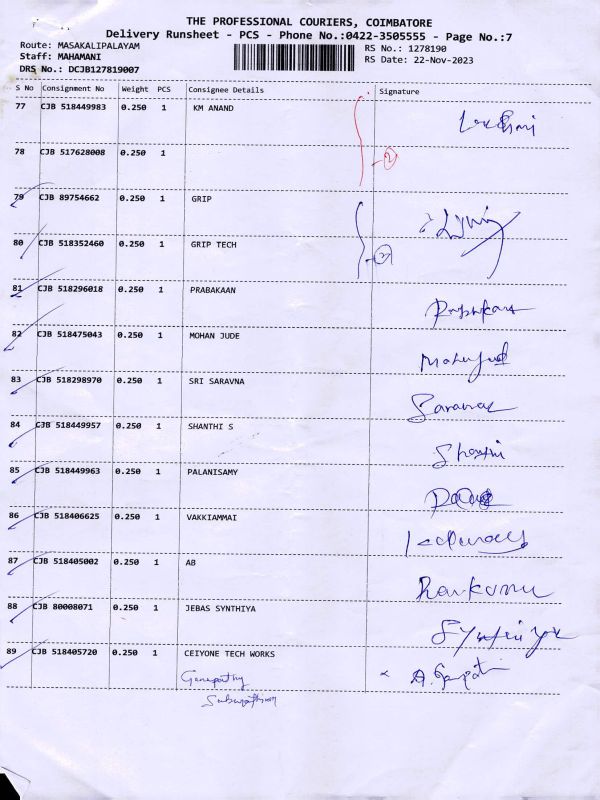 THE PROFESSIONAL COURIERS, COIMBATORE
Delivery Runsheet - PCS - Phone No.:0422-3505555 - Page No.:7
Route: MASAKALIPALAYAM RS No.: 1278190
Staff: MAHAMANI RS Date: 22-Nov-2023
DRS No.: DCJB127819007
S No Consignment No Weight PCS Consignee Details Signature
77 CJB 518449983 0.250 1 KM ANAND Lakshmi
78 CJB 517628008 0.250 1 2
79 CJB 89754662 0.250 1 GRIP
80 CJB 518352460 0.250 1 GRIP TECH
81 CJB 518296018 0.250 1 PRABAKAAN
82 CJB 518475043 0.250 1 MOHAN JUDE
83 CJB 518298970 0.250 1 SRI SARAVNA
84 CJB 518449957 0.250 1 SHANTHI S
85 CJB 518449963 0.250 1 PALANISAMY
86 CJB 518406625 0.250 1 VAKKIAMMAI
87 CJB 518405002 0.250 1 AB
88 CJB 80008071 0.250 1 JEBAS SYNTHIYA
89 CJB 518405720 0.250 1 CEIYONE TECH WORKS
Ganapathy